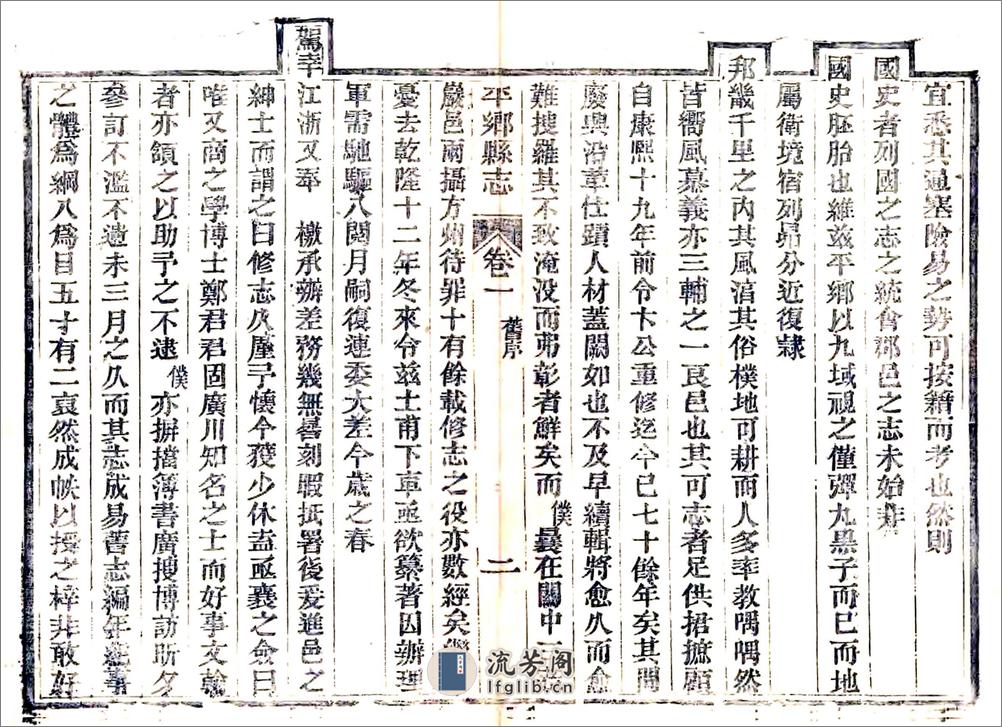 宜悉其通塞險易之勢可按籍而考也然則
國史者列國之志之統會郡邑之志未始非
國史胚胎也維茲平鄉以九域視之僅彈丸黒子而已而地
屬衛境宿列昴分近復隸
邦畿千里之内其風淯其俗樸地可耕而人多率教喁喁然
皆嚮風慕義亦三輔之一良邑也其可志者足供捃摭顧
自康熙十九年前令卞公重修迄今已七十餘年矣其間
廢興沿革仕蹟人材蓋闕如也不及早續輯將愈久而愈
難搜羅其不致淹没而弗彰者鮮矣而僕曩在關中一
平鄉縣志 卷一 舊序 二
巖邑兩攝方州待罪十有餘載修志之役亦數經矣
憂去乾隆十二年冬來令茲土甫下車亟欲纂著因辦理
軍需馳驅八閱月嗣復連委大差今歲之春
駕幸江浙又奉 檄承辦差務幾無晷刻暇抵署後爰進邑之
紳士而謂之曰修志久廑予懷今獲少休盍亟襄之僉曰
唯又商之學博士鄭君君固廣川知名之士而好事文翰
者亦頷之以助予之不逮僕亦摒擋簿書廣搜博訪昕夕
參訂不濫不遺未三月之久而其志成易舊志編年紀事
之體爲綱八爲目五十有二裒然成帙以授之梓非敢好
流芳阁
lfglib.cn